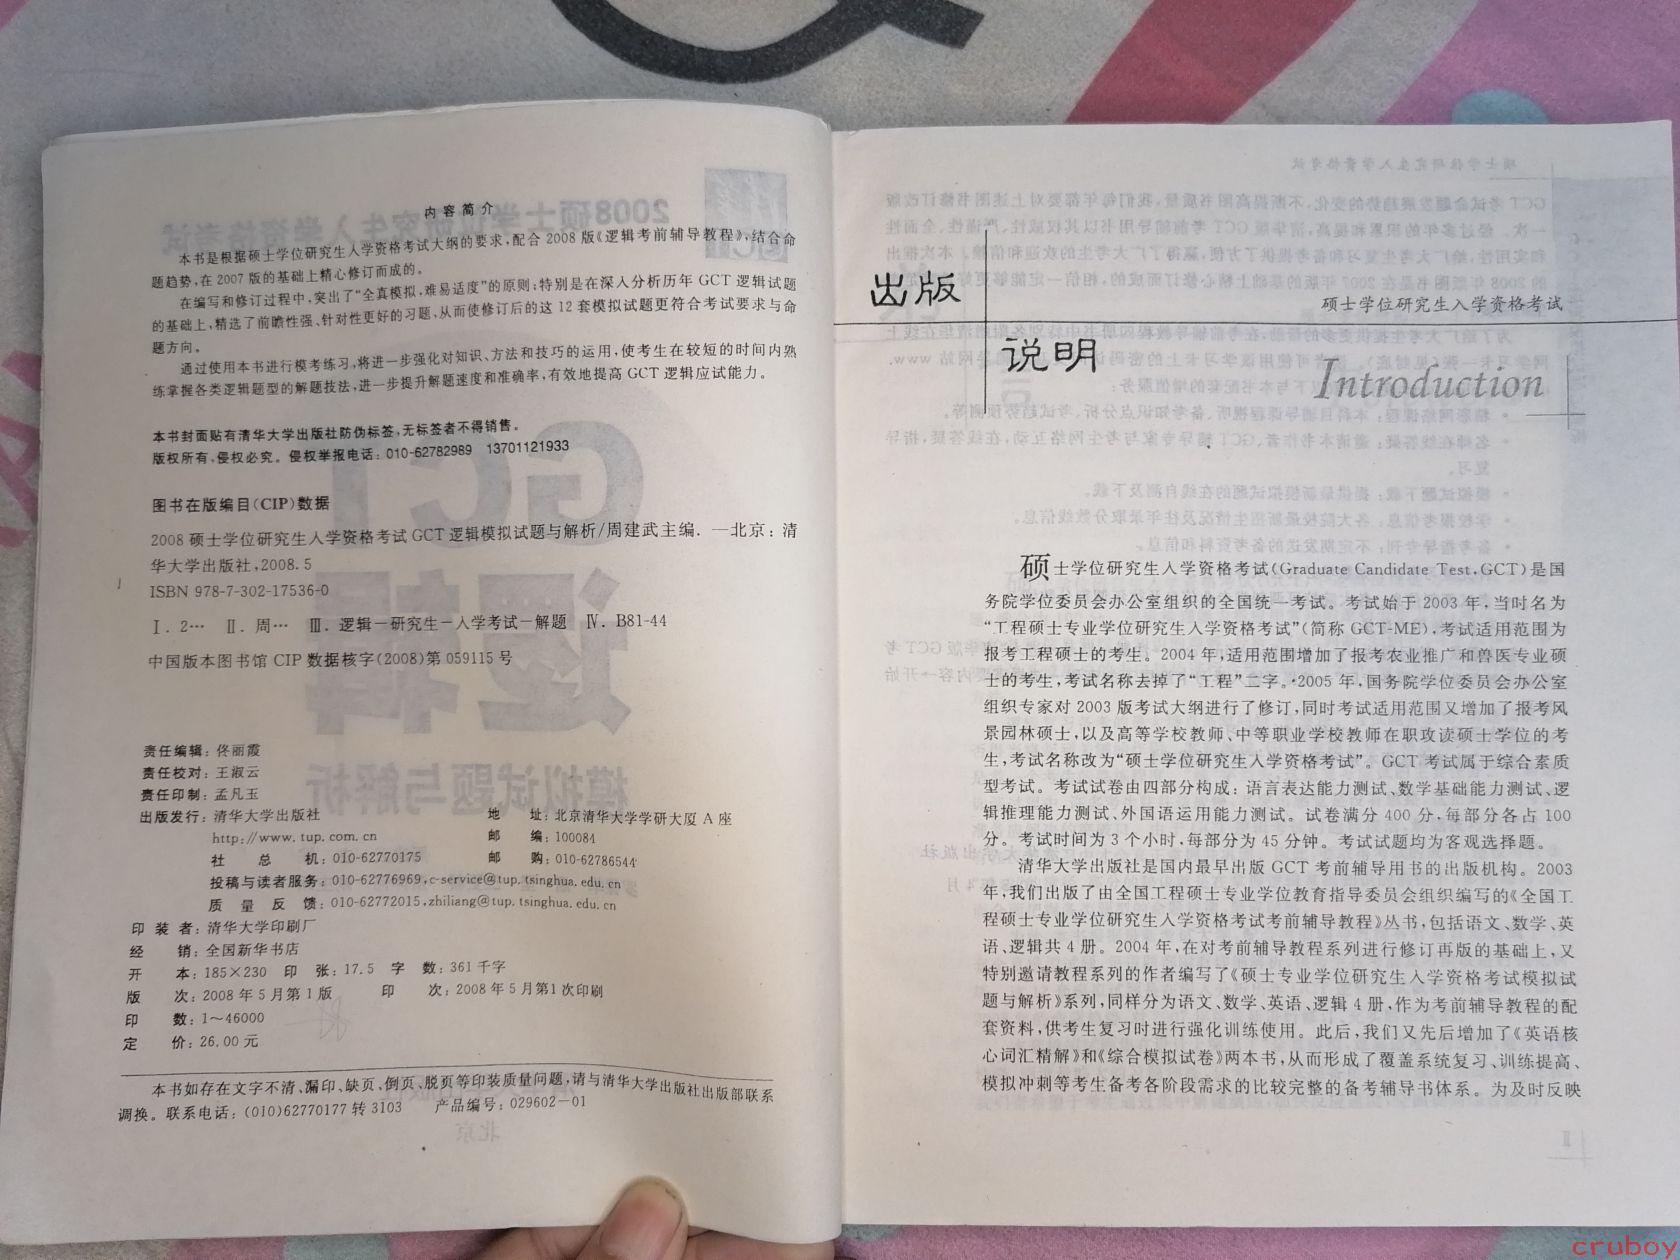 内容简介
本书是根据硕士学位研究生入学资格考试大纲的要求,配合 2008 版《逻辑考前辅导教程》,结合命
题趋势,在 2007 版的基础上精心修订而成的。
在编写和修订过程中,突出了“全真模拟,难易适度”的原则;特别是在深入分析历年 GCT 逻辑试题
的基础上,精选了前瞻性强、针对性更好的习题,从而使修订后的这 12 套模拟试题更符合考试要求与命
题方向。
通过使用本书进行模考练习,将进一步强化对知识、方法和技巧的运用,使考生在较短的时间内熟
练掌握各类逻辑题型的解题技法,进一步提升解题速度和准确率,有效地提高 GCT 逻辑应试能力。
本书封面贴有清华大学出版社防伪标签,无标签者不得销售。
版权所有,侵权必究。侵权举报电话:010-62782989 13701121933
图书在版编目(CIP)数据
2008 硕士学位研究生入学资格考试 GCT 逻辑模拟试题与解析/周建武主编. —北京:清
华大学出版社,2008.5
ISBN 978-7-302-17536-0
Ⅰ. 2… Ⅱ. 周… Ⅲ. 逻辑-研究生-入学考试-解题 Ⅳ. B81-44
中国版本图书馆 CIP 数据核字(2008)第 059115 号
责任编辑:佟丽霞
责任校对:王淑云
责任印制:孟凡玉
出版发行:清华大学出版社 地 址:北京清华大学学研大厦 A 座
http://www.tup.com.cn 邮 编:100084
社 总 机:010-62770175 邮 购:010-62786544
投稿与读者服务:010-62776969,c-service@tup.tsinghua.edu.cn
质 量 反 馈:010-62772015,zhiliang@tup.tsinghua.edu.cn
印 装 者:清华大学印刷厂
经 销:全国新华书店
开 本:185×230 印 张:17.5 字 数:361 千字
版 次:2008 年 5 月第 1 版 印 次:2008 年 5 月第 1 次印刷
印 数:1~46000
定 价:26.00 元
本书如存在文字不清、漏印、缺页、倒页、脱页等印装质量问题,请与清华大学出版社出版部联系
调换。联系电话:(010)62770177 转 3103 产品编号:029602-01
出版
硕士学位研究生入学资格考试
说明
Introduction
硕士学位研究生入学资格考试(Graduate Candidate Test,GCT)是国
务院学位委员会办公室组织的全国统一考试。考试始于 2003 年,当时名为
“工程硕士专业学位研究生入学资格考试”(简称 GCT-ME),考试适用范围为
报考工程硕士的考生。2004 年,适用范围增加了报考农业推广和兽医专业硕
士的考生,考试名称去掉了“工程”二字。2005 年,国务院学位委员会办公室
组织专家对 2003 版考试大纲进行了修订,同时考试适用范围又增加了报考风
景园林硕士,以及高等学校教师、中等职业学校教师在职攻读硕士学位的考
生,考试名称改为“硕士学位研究生入学资格考试”。GCT 考试属于综合素质
型考试。考试试卷由四部分构成:语言表达能力测试、数学基础能力测试、逻
辑推理能力测试、外国语运用能力测试。试卷满分 400 分,每部分各占 100
分。考试时间为 3 个小时,每部分为 45 分钟。考试试题均为客观选择题。
清华大学出版社是国内最早出版 GCT 考前辅导用书的出版机构。2003
年,我们出版了由全国工程硕士专业学位教育指导委员会组织编写的《全国工
程硕士专业学位研究生入学资格考试考前辅导教程》丛书,包括语文、数学、英
语、逻辑共 4 册。2004 年,在对考前辅导教程系列进行修订再版的基础上,又
特别邀请教程系列的作者编写了《硕士专业学位研究生入学资格考试模拟试
题与解析》系列,同样分为语文、数学、英语、逻辑 4 册,作为考前辅导教程的配
套资料,供考生复习时进行强化训练使用。此后,我们又先后增加了《英语核
心词汇精解》和《综合模拟试卷》两本书,从而形成了覆盖系统复习、训练提高、
模拟冲刺等考生备考各阶段需求的比较完整的备考辅导书体系。为及时反映
cruboy